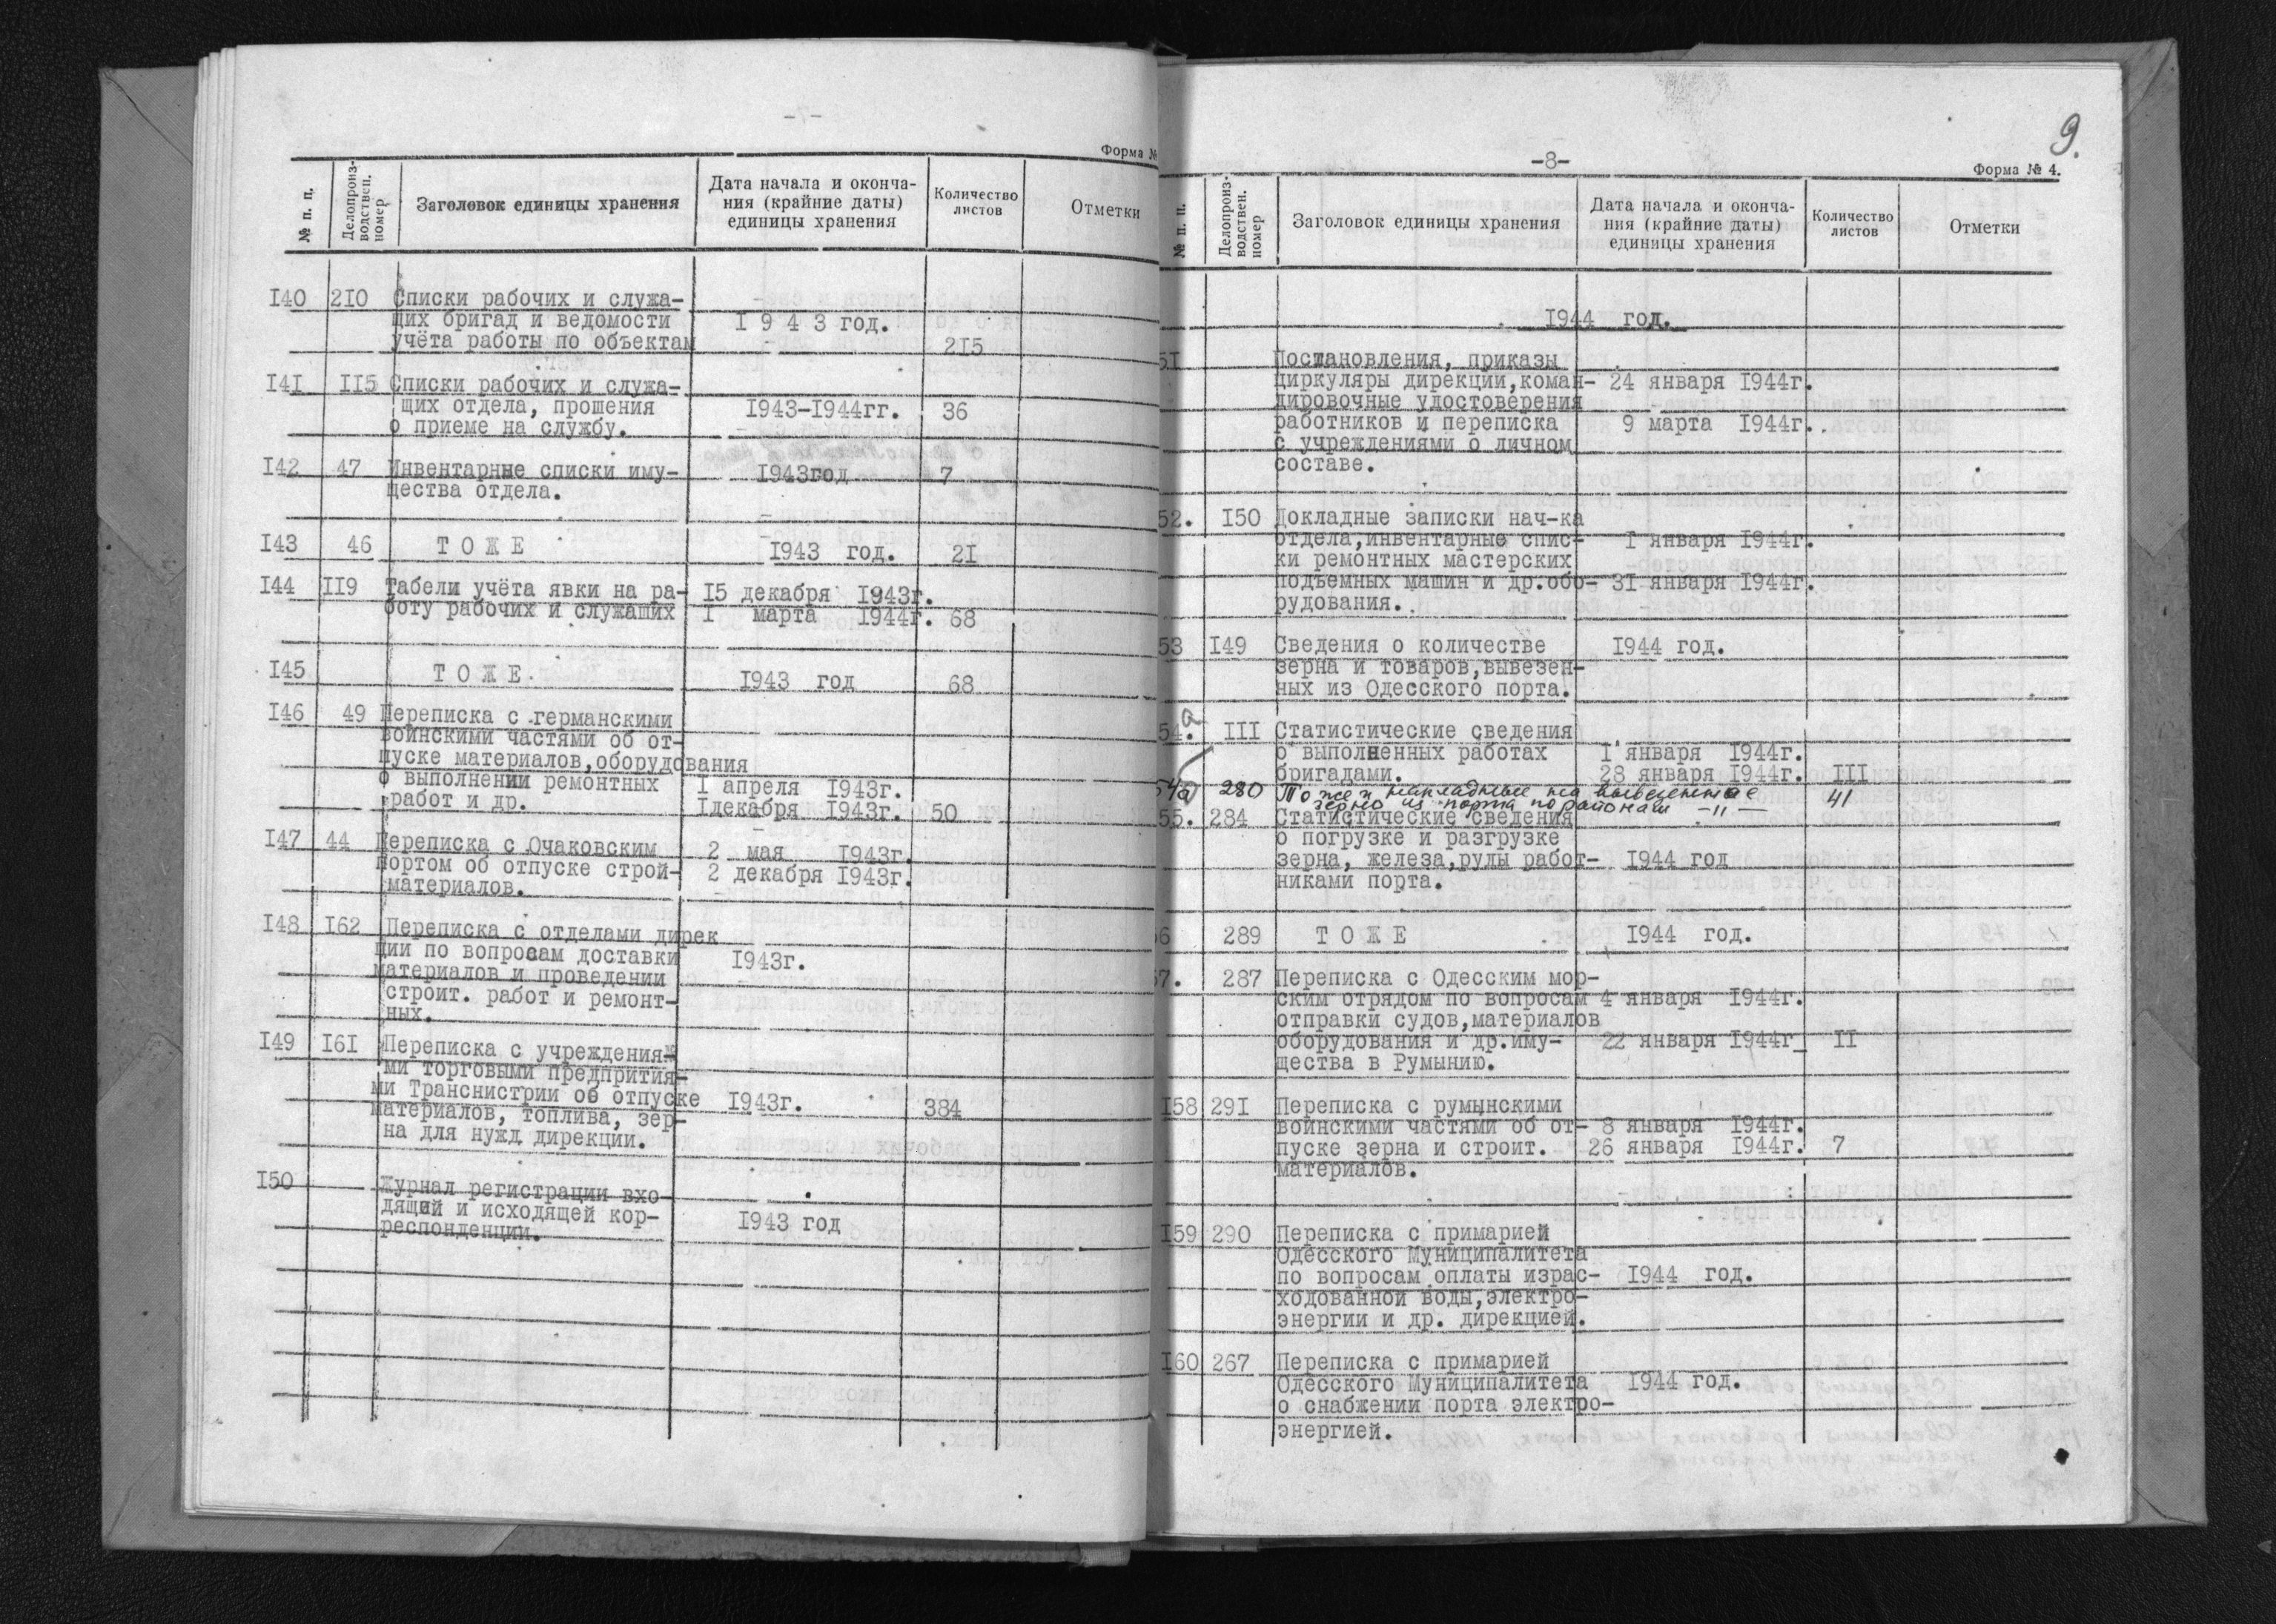 -7-
Форма №
№ п. п.
Делопроиз-
водствен.
номер
Заголовок единицы хранения
Дата начала и оконча-
ния (крайние даты)
единицы хранения
Количество
листов
Отметки
I40 2I0 Списки рабочих и служа-
щих бригад и ведомости I 9 4 3 год.
учёта работы по объектам 2I5
I4I II5 Списки рабочих и служа-
щих отдела, прошения I943-I944гг. 36
о приеме на службу.
I42 47 Инвентарные списки иму- I943год 7
щества отдела.
I43 46 Т О Ж Е I943 год. 2I
I44 II9 Табели учёта явки на ра- I5 декабря I943г.
боту рабочих и служаших I марта I944г. 68
I45 Т О Ж Е I943 год 68
I46 49 Переписка с германскими
воинскими частями об от-
пуске материалов,оборудования
о выполнении ремонтных I апреля I943г.
работ и др. Iдекабря I943г. 50
I47 44 Переписка с Очаковским 2 мая I943г.
портом об отпуске строй- 2 декабря I943г.
материалов.
I48 I62 Переписка с отделами дирек
ции по вопросам доставки I943г.
материалов и проведении
строит. работ и ремонт-
ных.
I49 I6I Переписка с учреждения-
ми торговыми предпрития-
ми Транснистрии об отпуске I943г. 384
материалов, топлива, зер-
на для нужд дирекции.
I50 Журнал регистрации вхо-
дящей и исходящей кор- I943 год
респонденции.
9.
-8-
Форма № 4.
№ п. п.
Делопроиз-
водствен.
номер
Заголовок единицы хранения
Дата начала и оконча-
ния (крайние даты)
единицы хранения
Количество
листов
Отметки
I944 год.
5I Постановления, приказы
циркуляры дирекции,коман- 24 января I944г.
дировочные удостоверения
работников и переписка 9 марта I944г.
с учреждениями о личном
составе.
52. I50 Докладные записки нач-ка
отдела,инвентарные спис- I января I944г.
ки ремонтных мастерских
подъемных машин и др.обо- 3I января I944г.
рудования.
53 I49 Сведения о количестве I944 год.
зерна и товаров,вывезен-
ных из Одесского порта.
54. а III Статистические сведения
о выполненных работах I января I944г.
бригадами. 28 января I944г. III
54а 280 То же и накладные на вывезенное 41
зерно из порта по районам -"-
55. 284 Статистические сведения
о погрузке и разгрузке
зерна, железа,руды работ- I944 год
никами порта.
6 289 Т О Ж Е I944 год.
57. 287 Переписка с Одесским мор-
ским отрядом по вопросам 4 января I944г.
отправки судов,материалов
оборудования и др.иму- 22 января I944г_ II
щества в Румынию.
I58 29I Переписка с румынскими
воинскими частями об от- 8 января I944г.
пуске зерна и строит. 26 января I944г. 7
материалов.
I59 290 Переписка с примарией
Одесского Муниципалитета
по вопросам оплаты израс- I944 год.
ходованной воды,электро-
энергии и др. дирекцией.
I60 267 Переписка с примарией
Одесского Муниципалитета I944 год.
о снабжении порта электро-
энергией.